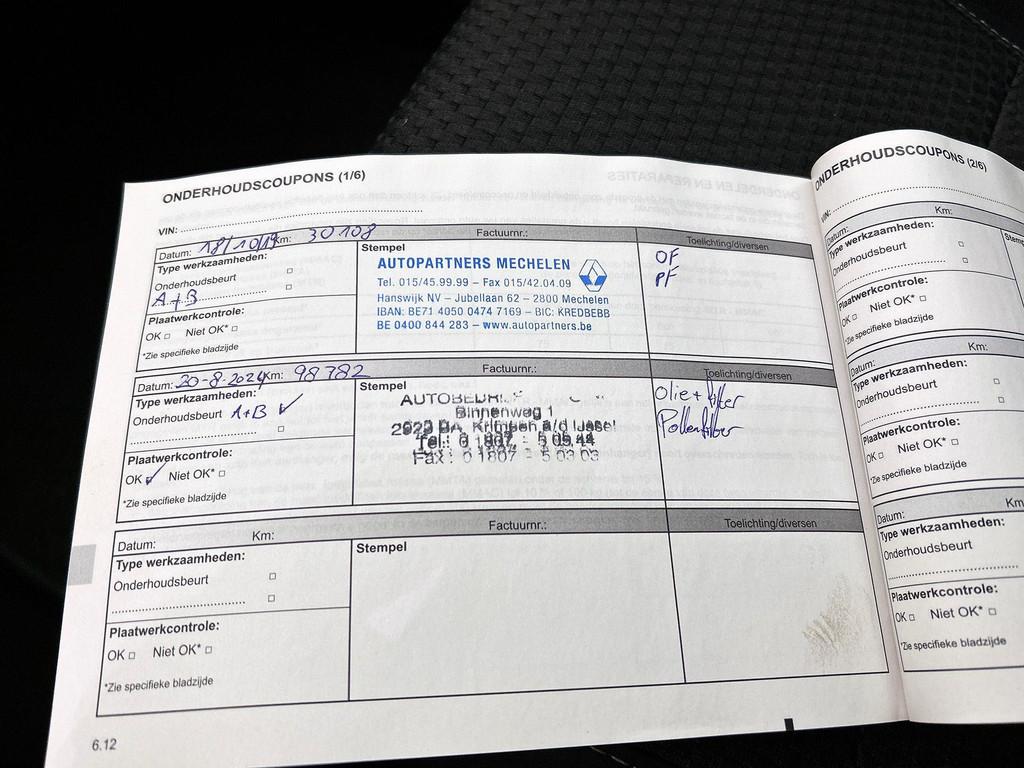 ONDERHOUDSCOUPONS (1/6)
VIN:
Datum: 18/10/19 Km: 30108 Factuurnr.: Toelichting/diversen
Type werkzaamheden:
Onderhoudsbeurt
A+B
Plaatwerkcontrole:
OK Niet OK*
*Zie specifieke bladzijde
Stempel
AUTOPARTNERS MECHELEN
Tel. 015/45.99.99 – Fax 015/42.04.09
Hanswijk NV – Jubellaan 62 – 2800 Mechelen
IBAN: BE71 4050 0474 7169 – BIC: KREDBEBB
BE 0400 844 283 – www.autopartners.be
OF
PF
Datum: 20-8-2024 Km: 98782 Factuurnr.: Toelichting/diversen
Type werkzaamheden:
Onderhoudsbeurt A+B ✓
Plaatwerkcontrole:
OK ✓ Niet OK*
*Zie specifieke bladzijde
Stempel
Binnenweg 1
a/d IJssel
Tel.:
Fax: 0 1807 -
Olie + filter
Pollenfilter
Datum: Km: Factuurnr.: Toelichting/diversen
Type werkzaamheden:
Onderhoudsbeurt
Plaatwerkcontrole:
OK Niet OK*
*Zie specifieke bladzijde
Stempel
6.12
ONDERHOUDSCOUPONS (2/6)
VIN:
Datum: Km:
Type werkzaamheden:
Onderhoudsbeurt
Plaatwerkcontrole:
OK Niet OK*
*Zie specifieke bladzijde
Datum: Km:
Type werkzaamheden:
Onderhoudsbeurt
Plaatwerkcontrole:
OK Niet OK*
*Zie specifieke bladzijde
Datum: Km
Type werkzaamheden:
Onderhoudsbeurt
Plaatwerkcontrole:
OK Niet OK*
*Zie specifieke bladzijde